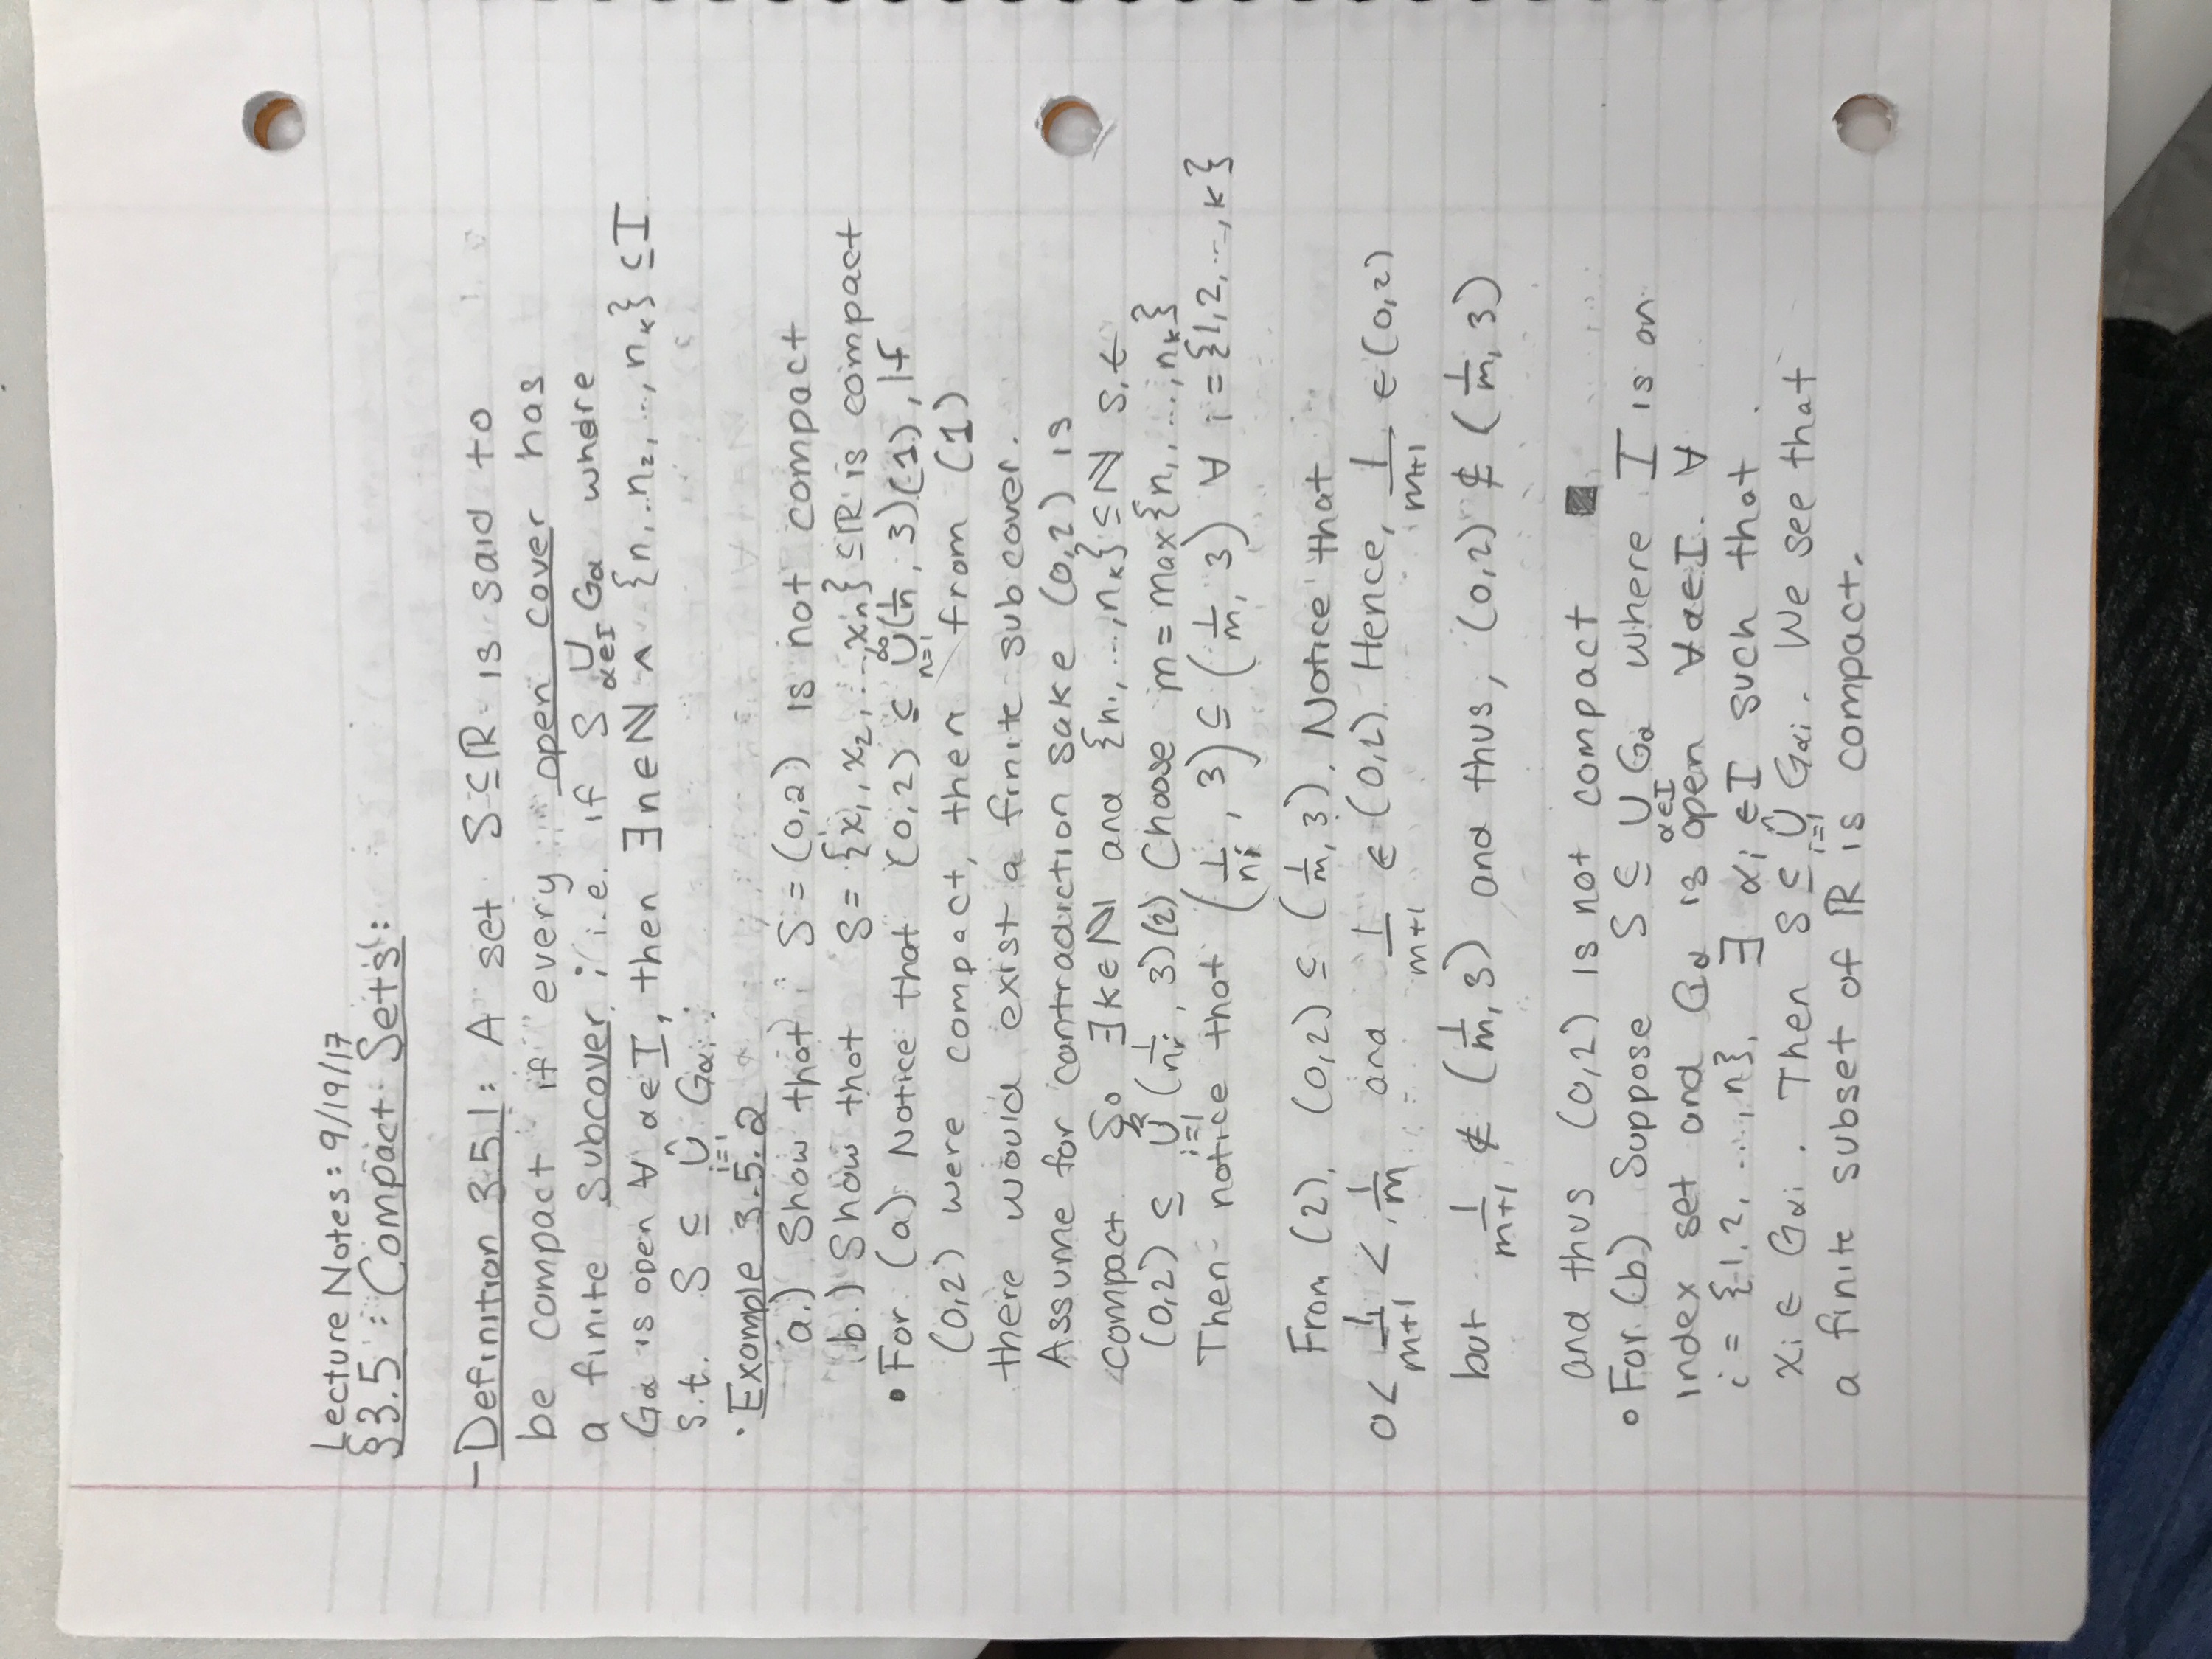 Lecture Notes: 9/19/17
§3.5: Compact Sets:
- Definition 3.5.1: A set S⊆ℝ is said to
be compact if every open cover has
a finite subcover; i.e. if S ∪_{α∈I} Gα where
Gα is open ∀ α∈I, then ∃n∈ℕ ∧ {n₁, n₂, ..., nₖ} ⊆ I
s.t. S ⊆ ∪_{i=1}^{n} Gαᵢ.
· Example 3.5.2
a.) Show that S = (0,2) is not compact
b.) Show that S = {x₁, x₂, ..., xₙ} ⊆ℝ is compact
• For (a) Notice that (0,2) ⊆ ∪_{n=1}^{∞} (1/n, 3) (1), If
(0,2) were compact, then from (1)
there would exist a finite subcover.
Assume for contradiction sake (0,2) is
compact. So ∃k∈ℕ and {n₁, ..., nₖ} ⊆ ℕ s.t
(0,2) ⊆ ∪_{i=1}^{k} (1/nᵢ, 3) (2) Choose m = max{n₁, ..., nₖ}
Then notice that (1/nᵢ, 3) ⊆ (1/m, 3) ∀ i = {1,2, ..., k}
From (2), (0,2) ⊆ (1/m, 3). Notice that
0 < 1/m+1 < 1/m and 1/m+1 ∈ (0,2). Hence, 1/m+1 ∈ (0,2)
but 1/m+1 ∉ (1/m, 3) and thus, (0,2) ⊈ (1/m, 3)
and thus (0,2) is not compact ■
• For (b) Suppose S ⊆ ∪_{α∈I} Gα where I is an
index set and Gα is open ∀α∈I. ∀
i = {1,2, ..., n}, ∃ αᵢ ∈I such that
xᵢ ∈ Gαᵢ. Then S ⊆ ∪_{i=1}^{n} Gαᵢ. We see that
a finite subset of ℝ is compact.